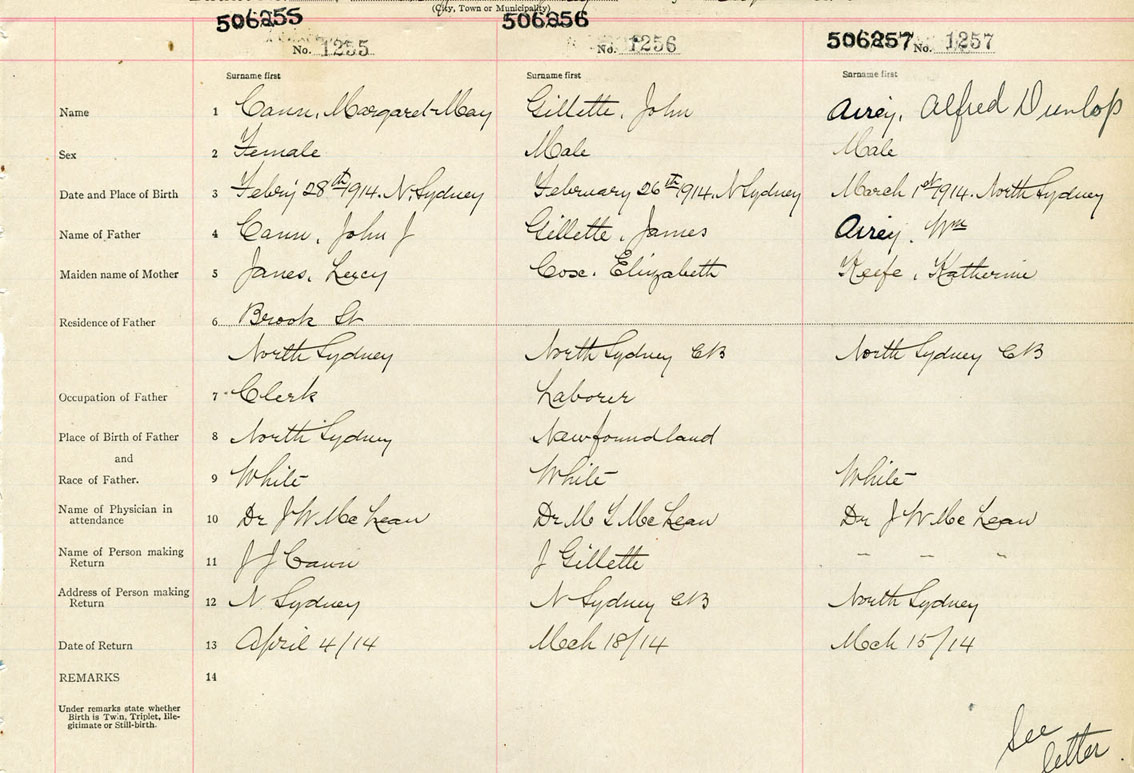 (City, Town or Municipality)
506255 506256 506257
No. 1255 No. 1256 No. 1257
Surname first Surname first Surname first
Name 1 Cann, Margaret May Gillette, John Airey, Alfred Dunlop
Sex 2 Female Male Male
Date and Place of Birth 3 Febry 28th 1914. N. Sydney February 26th 1914. N Sydney March 1st 1914. North Sydney
Name of Father 4 Cann, John J Gillette, James Airey, Wm
Maiden name of Mother 5 Janes, Lucy Cox, Elizabeth Keefe, Katherine
Residence of Father 6 Brook St
North Sydney North Sydney CB North Sydney CB
Occupation of Father 7 Clerk Laborer
Place of Birth of Father 8 North Sydney Newfoundland
and
Race of Father. 9 White White White
Name of Physician in
attendance 10 Dr J W McLean Dr M T McLean Dr J W McLean
Name of Person making
Return 11 J J Cann J Gillette " " "
Address of Person making
Return 12 N Sydney N Sydney CB North Sydney
Date of Return 13 April 4/14 Mch 18/14 Mch 15/14
REMARKS 14
Under remarks state whether
Birth is Twin, Triplet, Ille-
gitimate or Still-birth.
See
letter